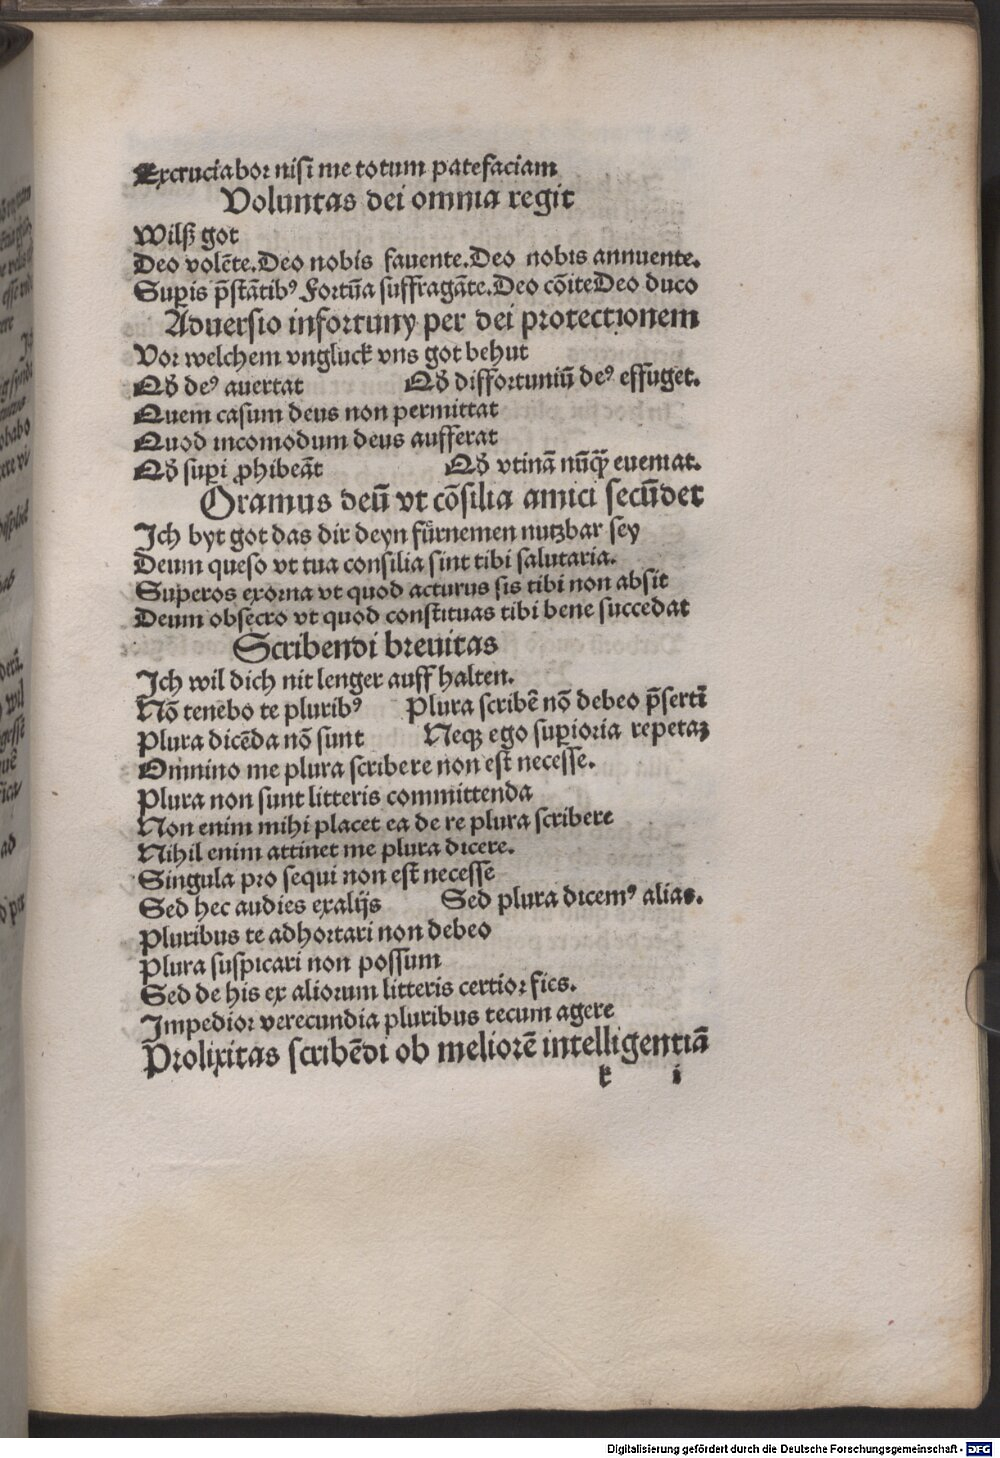 Excruciabor nisi me totum patefaciam
Voluntas dei omnia regit
Wilß got
Deo volēte. Deo nobis fauente. Deo nobis annuente.
Suꝑis p̄stātibꝰ Fortūa suffragāte. Deo cōite Deo duco
Aduersio infortuny per dei protectionem
Vor welchem vngluck vns got behut
Qð deꝰ auertat Qð diffortuniū deꝰ effuget.
Quem casum deus non permittat
Quod incomodum deus aufferat
Qð suꝑi ꝓhibeāt Qð vtinā nūꝙ̄ eueniat.
Oramus deū vt cōsilia amici secūdet
Ich byt got das dir deyn fürnemen nutzbar sey
Deum queso vt tua consilia sint tibi salutaria.
Superos exorna vt quod acturus sis tibi non absit
Deum obsecro vt quod constituas tibi bene succedat
Scribendi breuitas
Ich wil dich nit lenger auff halten.
Nō tenebo te pluribꝰ Plura scribē nō debeo p̄sertī
Plura dicēda nō sunt Neqꝫ ego suꝑioria repetaꝫ
Omnino me plura scribere non est necesse.
Plura non sunt litteris committenda
Non enim mihi placet ea de re plura scribere
Nihil enim attinet me plura dicere.
Singula pro sequi non est necesse
Sed hec audies exalijs Sed plura dicemꝰ alias.
Pluribus te adhortari non debeo
Plura suspicari non possum
Sed de his ex aliorum litteris certior fies.
Impedior verecundia pluribus tecum agere
Prolixitas scribēdi ob meliorē intelligentiā
k i
Digitalisierung gefördert durch die Deutsche Forschungsgemeinschaft - DFG